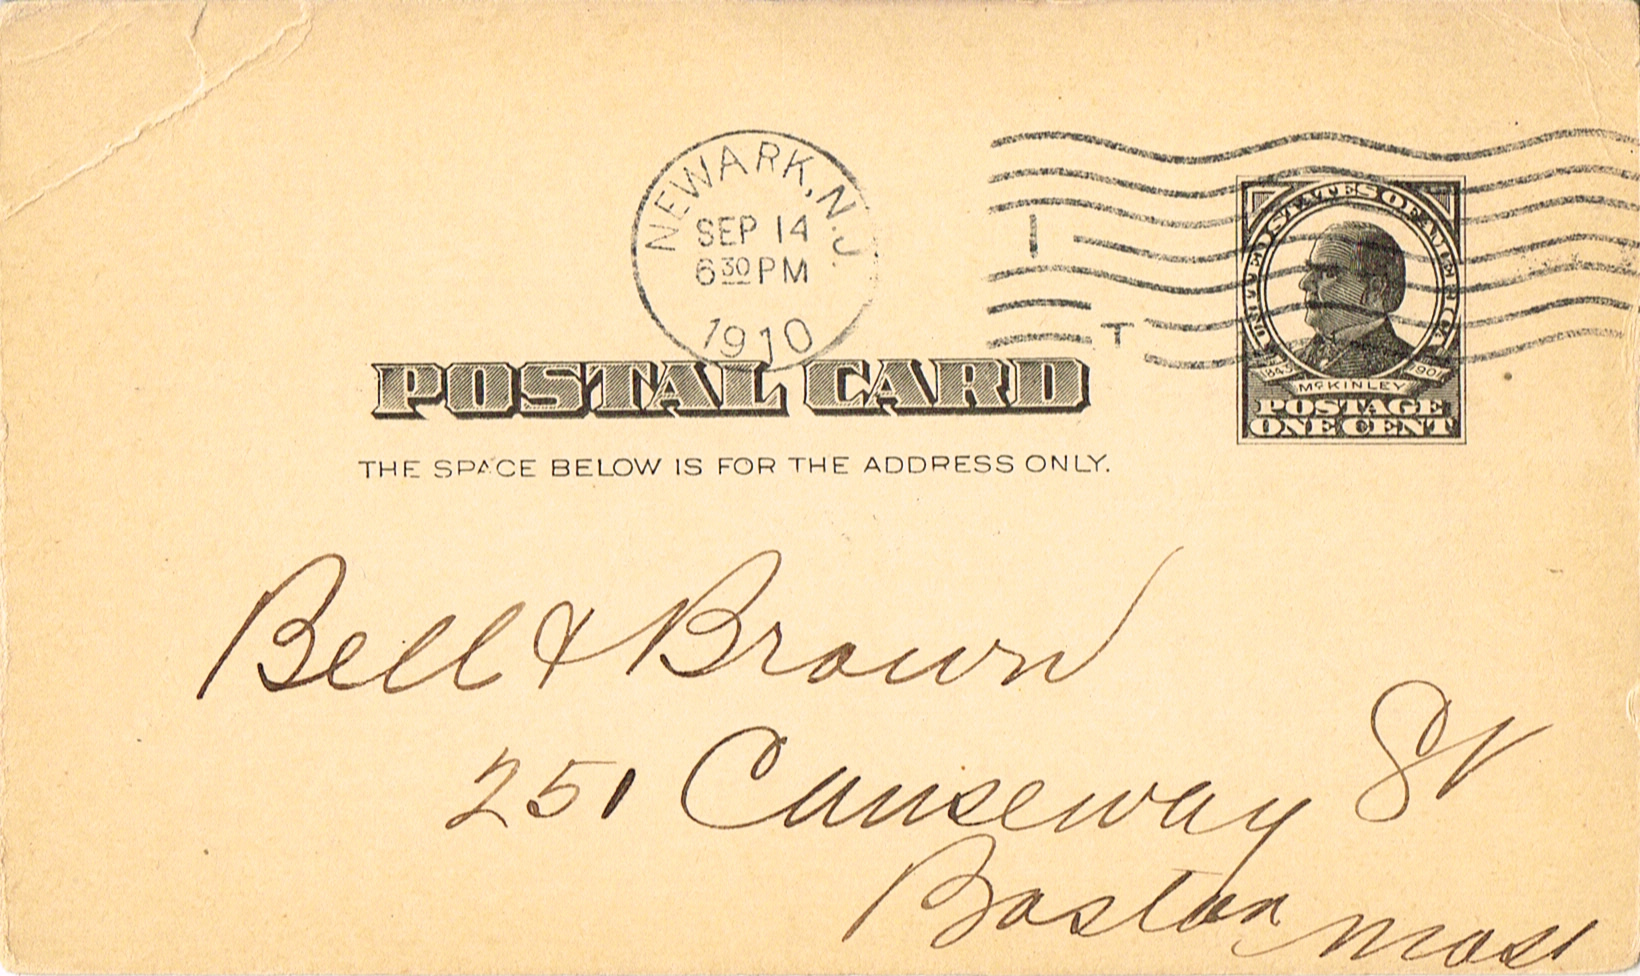 NEWARK, N.J.
SEP 14
6 30 PM
1910
I
T
UNITED STATES OF AMERICA
1843 1901
McKINLEY
POSTAGE
ONE CENT
POSTAL CARD
THE SPACE BELOW IS FOR THE ADDRESS ONLY.
Bell & Brown
251 Causeway St
Boston Mass